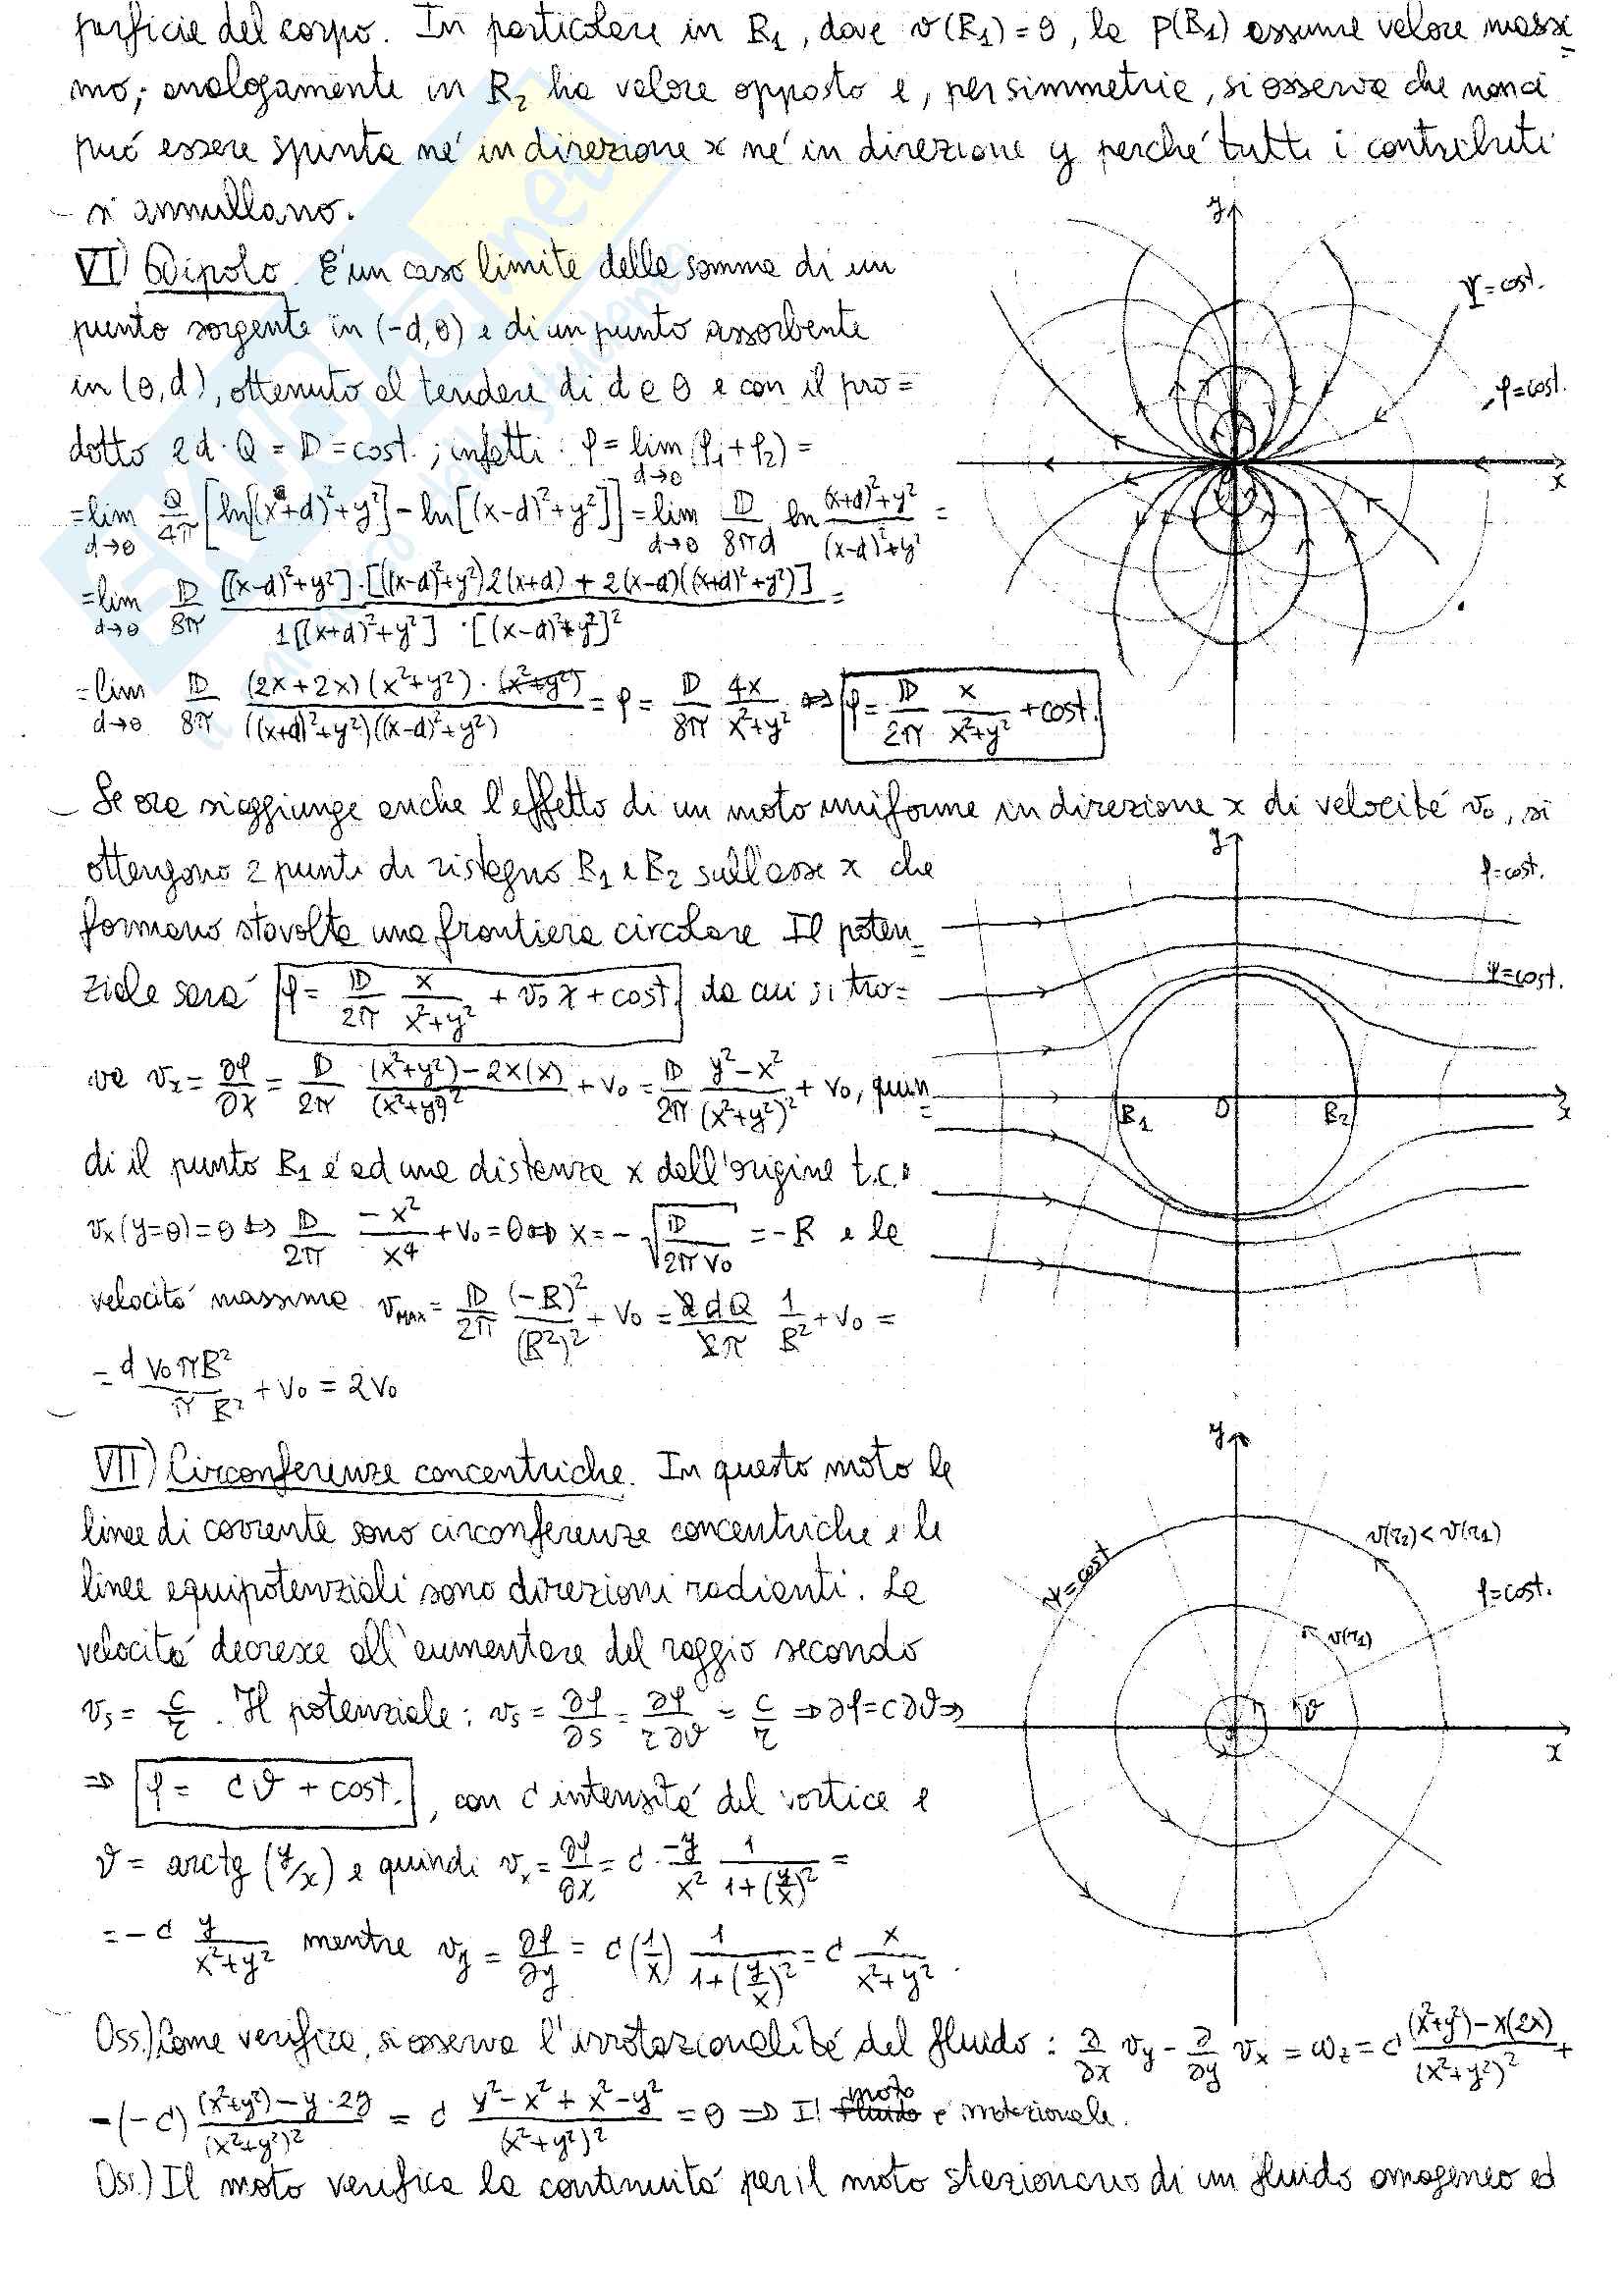 perficie del corpo. In particolare in B₁, dove v(B₁)=0, la p(B₁) assume valore massi=
mo; analogamente in B₂ ha valore opposto e, per simmetria, si osserva che non ci
può essere spinta né in direzione x né in direzione y perché tutti i contributi
si annullano.
VI) Dipolo. È un caso limite della somma di un
punto sorgente in (-d,0) e di un punto assorbente
in (0,d), ottenuto al tendere di d a 0 e con il pro=
dotto 2d·Q = D = cost.; infatti: φ = lim d→0 (φ₁+φ₂) =
= lim d→0 Q/4π [ln[(x+d)²+y²] - ln[(x-d)²+y²]] = lim d→0 D/8πd ln (x+d)²+y²/(x-d)²+y² =
= lim d→0 D/8π [(x-d)²+y²]·[((x-d)²+y²)2(x+d) + 2(x-d)((x+d)²+y²)] / 1[(x+d)²+y²]·[(x-d)²+y²]² =
= lim d→0 D/8π (2x+2x)(x²+y²)·(x²+y²) / ((x+d)²+y²)((x-d)²+y²) = φ = D/8π 4x/x²+y² ⇔ φ = D/2π x/x²+y² + cost.
y
ψ=cost.
φ=cost.
x
Se ora si aggiunge anche l'effetto di un moto uniforme in direzione x di velocità v₀, si
ottengono 2 punti di ristagno B₁ e B₂ sull'asse x che
formano stavolta una frontiera circolare. Il poten=
ziale sarà φ = D/2π x/x²+y² + v₀x + cost. da cui si tro=
va vₓ = ∂φ/∂x = D/2π (x²+y²)-2x(x)/(x²+y²)² + v₀ = D/2π y²-x²/(x²+y²)² + v₀, quin=
di il punto B₁ è ad una distanza x dall'origine t.c.
vₓ(y=0)=0 ⇔ D/2π -x²/x⁴ + v₀ = 0 ⇔ x = -√(D/2πv₀) = -R e la
velocità massima v_MAX = D/2π (-R)²/(R²)² + v₀ = 2dQ/2π 1/R² + v₀ =
= d v₀πR²/π R² + v₀ = 2v₀
y
φ=cost.
ψ=cost.
B₁ O B₂ x
VII) Circonferenze concentriche. In questo moto le
linee di corrente sono circonferenze concentriche e le
linee equipotenziali sono direzioni radianti. La
velocità decresce all'aumentare del raggio secondo
vₛ = c/r. Il potenziale: vₛ = ∂φ/∂s = ∂φ/r∂ϑ = c/r ⇒ ∂φ = c∂ϑ ⇒
⇒ φ = cϑ + cost., con c intensità del vortice e
ϑ = arctg (y/x) e quindi vₓ = ∂φ/∂x = c · -y/x² 1/1+(y/x)² =
= -c y/x²+y² mentre v_y = ∂φ/∂y = c(1/x) 1/1+(y/x)² = c x/x²+y².
y
v(r₂)<v(r₁)
ψ=cost
φ=cost.
v(r₁)
ϑ
x
Oss.) Come verifica, si osserva l'irrotazionalità del fluido: ∂/∂x v_y - ∂/∂y vₓ = ω_z = c (x²+y²)-x(2x)/(x²+y²)² +
-(-c) (x²+y²)-y·2y/(x²+y²)² = c y²-x²+x²-y²/(x²+y²)² = 0 ⇒ Il moto è irrotazionale.
Oss.) Il moto verifica la continuità per il moto stazionario di un fluido omogeneo ed